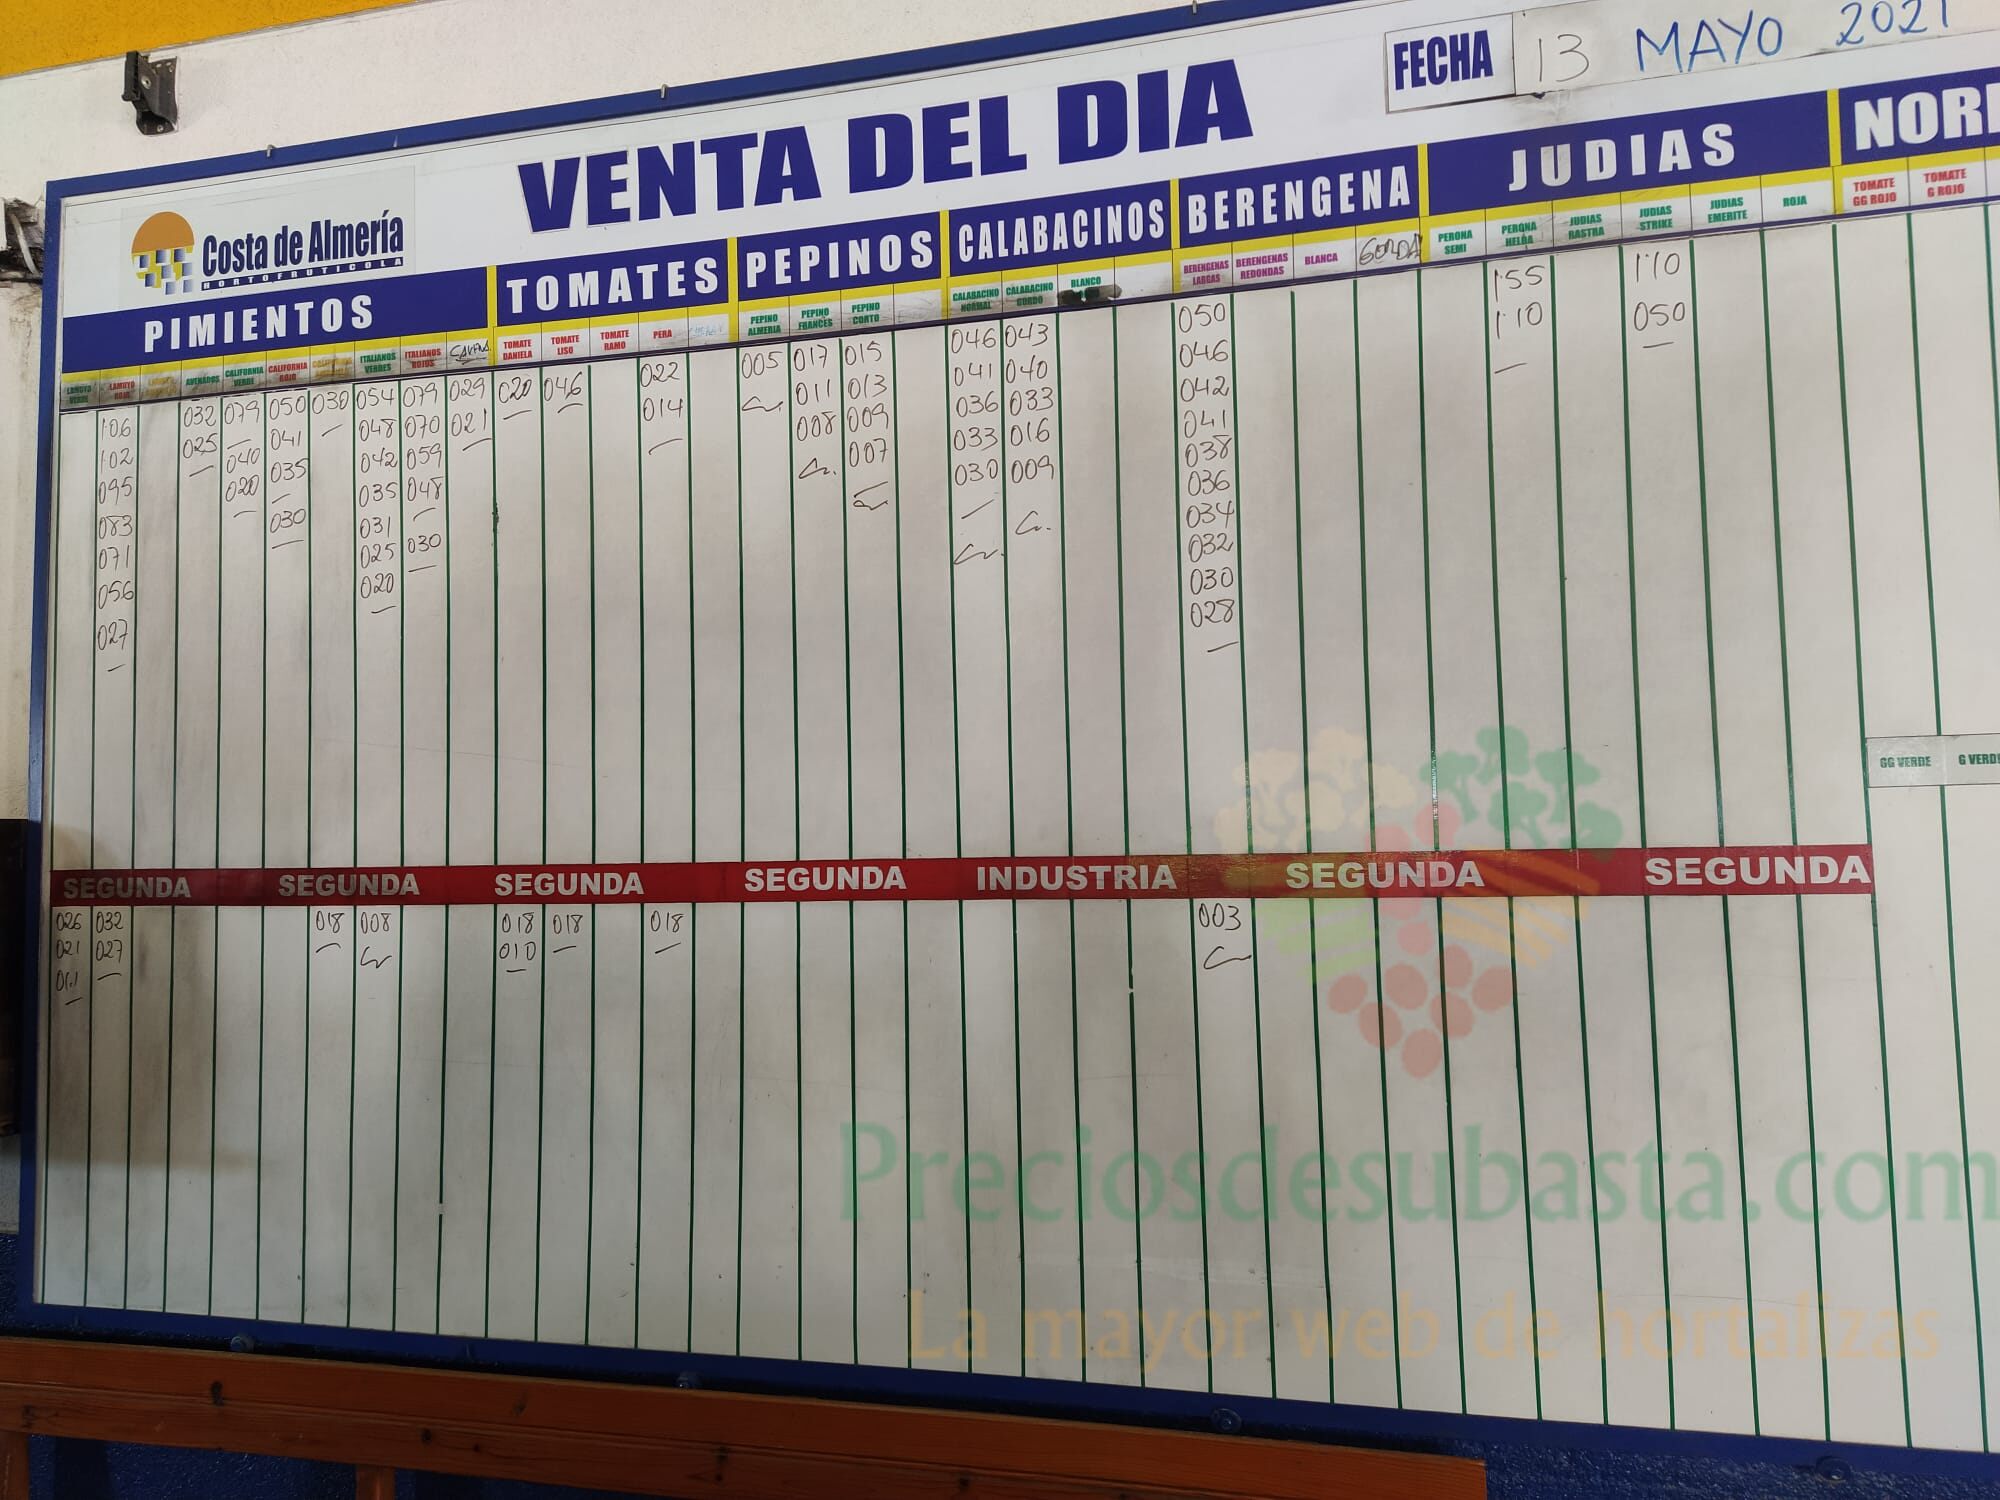 FECHA 13 MAYO 2021
VENTA DEL DIA
Costa de Almería
HORTOFRUTICOLA
PIMIENTOS TOMATES PEPINOS CALABACINOS BERENGENA JUDIAS
LAMUYO VERDE
LAMUYO ROJO
ASURADOS
CALIFORNIA VERDE
CALIFORNIA ROJO
ITALIANOS VERDES
ITALIANOS ROJOS
TOMATE DANIELA
TOMATE LISO
TOMATE RAMO
PERA
PEPINO ALMERIA
PEPINO FRANCES
PEPINO CORTO
CALABACINO NORMAL
CALABACINO GORDO
BLANCO
BERENGENAS LARGAS
BERENGENAS REDONDAS
BLANCA
GORDA
PERONA SEMI
PERONA HELDA
JUDIAS RASTRA
JUDIAS STRIKE
JUDIAS EMERITE
ROJA
TOMATE GG ROJO
TOMATE G ROJO
1'06
1'02
095
083
071
056
027
032
025
079
040
020
050
041
035
030
030
054
048
042
035
031
025
020
079
070
059
048
030
029
021
020
046
022
014
005
017
011
008
015
013
009
007
046
041
036
033
030
043
040
033
016
009
050
046
042
041
038
036
034
032
030
028
1'55
1'10
1'10
050
GG VERDE
SEGUNDA SEGUNDA SEGUNDA SEGUNDA INDUSTRIA SEGUNDA SEGUNDA
026
021
032
027
018
008
018
010
018
018
003
Preciosdesubasta.com
La mayor web de hortalizas